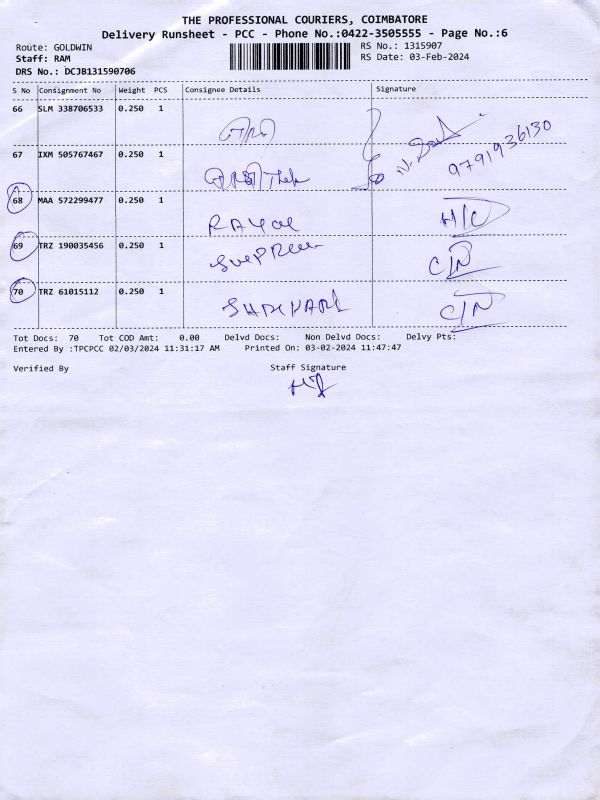 THE PROFESSIONAL COURIERS, COIMBATORE
Delivery Runsheet - PCC - Phone No.:0422-3505555 - Page No.:6
Route: GOLDWIN
Staff: RAM
DRS No.: DCJB131590706
RS No.: 1315907
RS Date: 03-Feb-2024
S No Consignment No Weight PCS Consignee Details Signature
66 SLM 338706533 0.250 1
67 IXM 505767467 0.250 1
9791936130
68 MAA 572299477 0.250 1 H/C
69 TRZ 190035456 0.250 1 C/N
70 TRZ 61015112 0.250 1 C/N
Tot Docs: 70 Tot COD Amt: 0.00 Delvd Docs: Non Delvd Docs: Delvy Pts:
Entered By :TPCPCC 02/03/2024 11:31:17 AM Printed On: 03-02-2024 11:47:47
Verified By Staff Signature